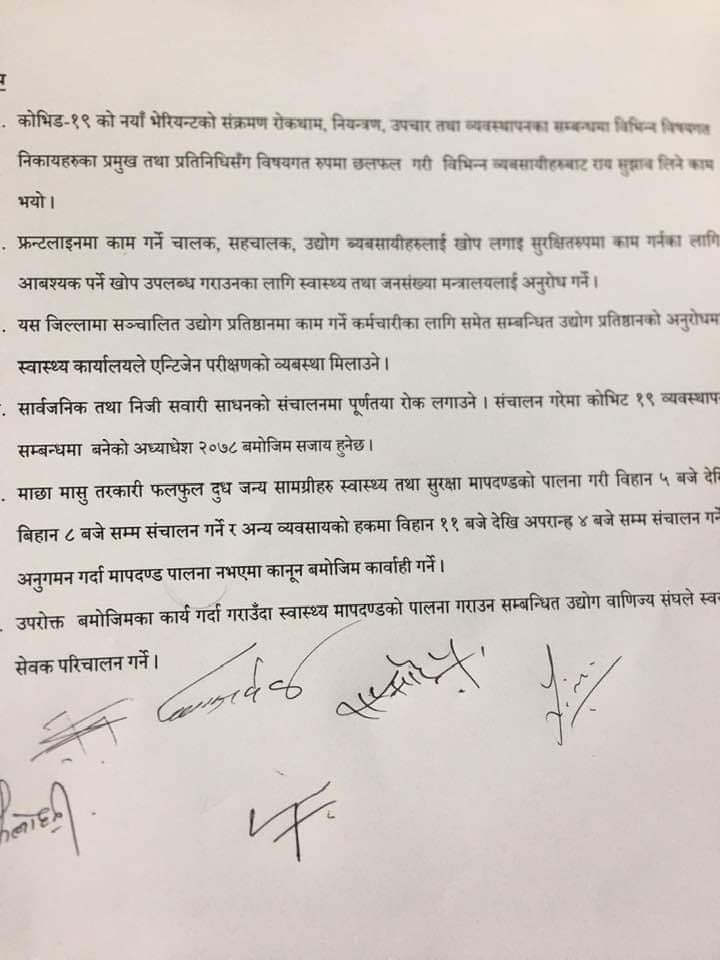 . कोभिड-१९ को नयाँ भेरियन्टको संक्रमण रोकथाम, नियन्त्रण, उपचार तथा व्यवस्थापनका सम्बन्धमा विभिन्न विषयगत
निकायहरुका प्रमुख तथा प्रतिनिधिसँग विषयगत रुपमा छलफल गरी विभिन्न व्यबसायीहरुबाट राय सुझाव लिने काम
भयो ।
. फ्रन्टलाइनमा काम गर्ने चालक, सहचालक, उद्योग ब्यबसायीहरुलाई खोप लगाइ सुरक्षितरुपमा काम गर्नका लागि
आबश्यक पर्ने खोप उपलब्ध गराउनका लागि स्वास्थ्य तथा जनसंख्या मन्त्रालयलाई अनुरोध गर्ने ।
. यस जिल्लामा सञ्चालित उद्योग प्रतिष्ठानमा काम गर्ने कर्मचारीका लागि समेत सम्बन्धित उद्योग प्रतिष्ठानको अनुरोधमा
स्वास्थ्य कार्यालयले एन्टिजेन परीक्षणको व्यबस्था मिलाउने ।
. सार्वजनिक तथा निजी सवारी साधनको संचालनमा पूर्णतया रोक लगाउने । संचालन गरेमा कोभिट १९ व्यवस्थाप
सम्बन्धमा बनेको अध्याधेश २०७८ बमोजिम सजाय हुनेछ ।
. माछा मासु तरकारी फलफुल दुध जन्य सामग्रीहरु स्वास्थ्य तथा सुरक्षा मापदण्डको पालना गरी विहान ५ बजे देखि
बिहान ८ बजे सम्म संचालन गर्ने र अन्य व्यवसायको हकमा विहान ११ बजे देखि अपरान्ह ४ बजे सम्म संचालन गर्ने
अनुगमन गर्दा मापदण्ड पालना नभएमा कानून बमोजिम कार्वाही गर्ने ।
. उपरोक्त बमोजिमका कार्य गर्दा गराउँदा स्वास्थ्य मापदण्डको पालना गराउन सम्बन्धित उद्योग वाणिज्य संघले स्व
सेवक परिचालन गर्ने ।